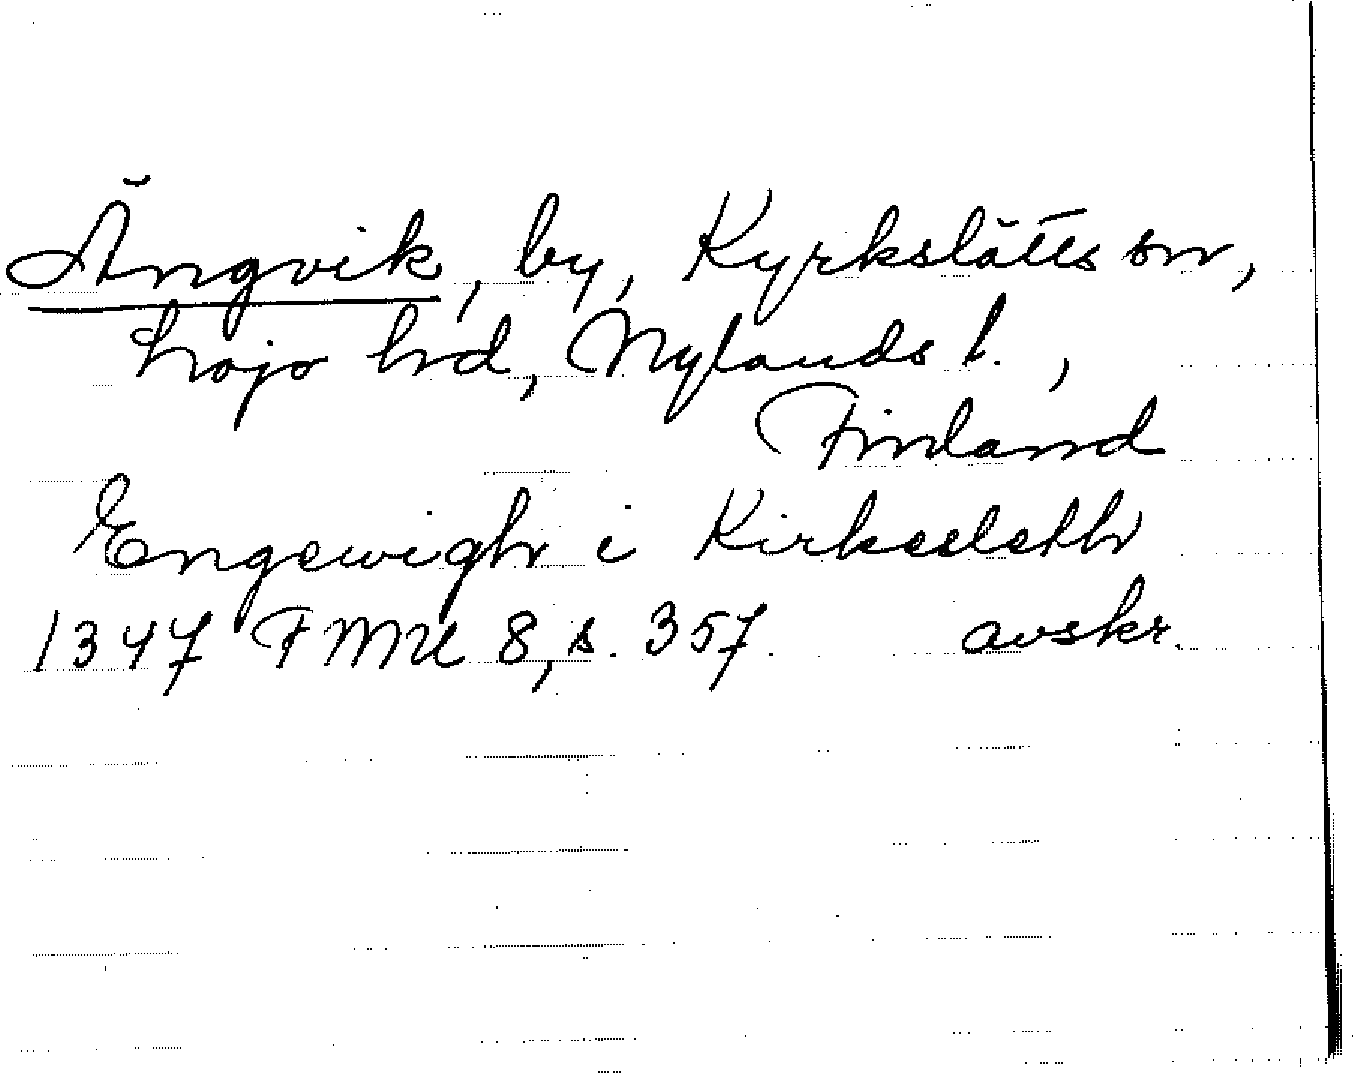 Ängvik, by, Kyrkslätts sn,
Lojo hd, Nylands l.,
Finland
Engewigh i Kirkesleth
1347 FMU 8, s. 357. avskr.